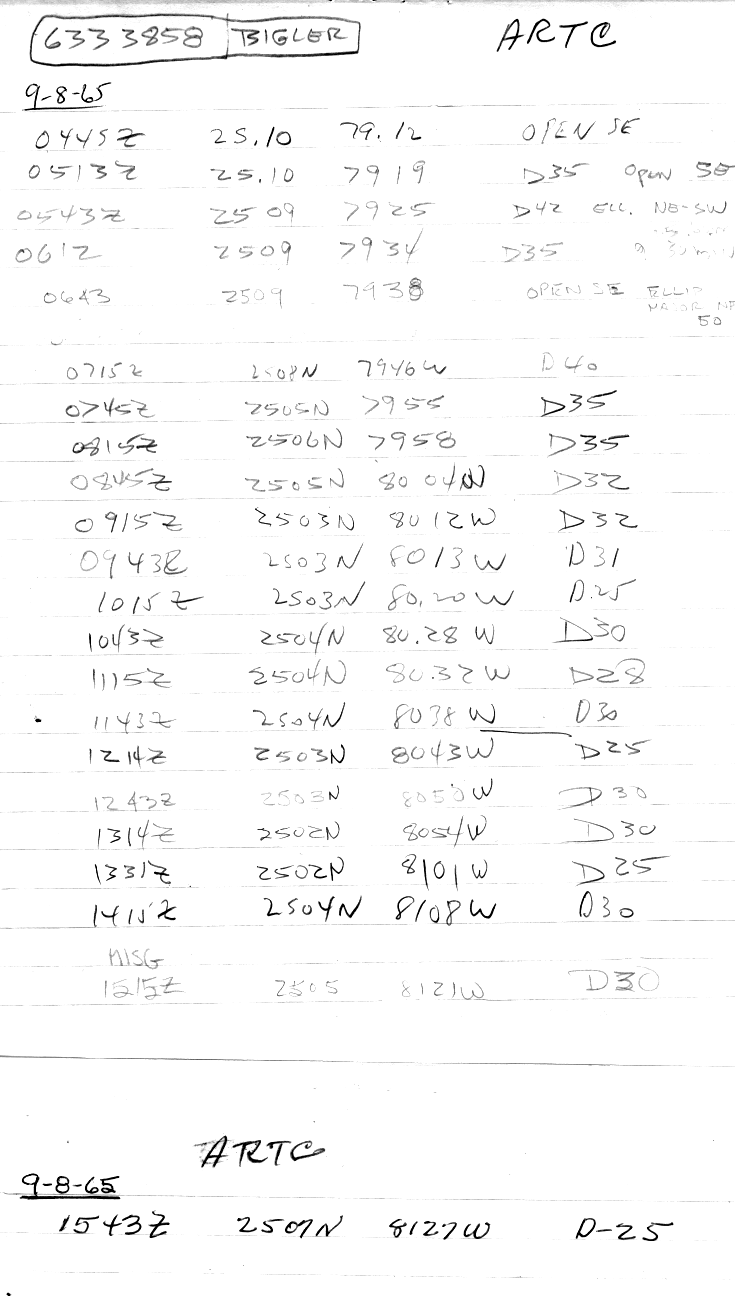 6333858 BIGLER ARTC
9-8-65
0445Z 25.10 79.12 OPEN SE
0513Z 25.10 7919 D35 Open SE
0543Z 2509 7925 D42 ELL. NE-SW
0612 2509 7934 D35
0643 2509 7938 OPEN SE ELLIP
MAJOR NE
50
0715Z 2508N 7946W D40
0745Z 2505N 7955 D35
0815Z 2506N 7958 D35
0845Z 2505N 8004W D32
0915Z 2503N 8012W D32
0943Z 2503N 8013W D31
1015Z 2503N 80.20W D.25
1043Z 2504N 80.28W D30
1115Z 2504N 80.32W D28
1143Z 2504N 8038W D30
1214Z 2503N 8043W D25
1243Z 2503N 8050W D30
1314Z 2502N 8054W D30
1331Z 2502N 8101W D25
1415Z 2504N 8108W D30
MISG
1515Z 2505 8121W D30
ARTC
9-8-65
1543Z 2507N 8127W D-25